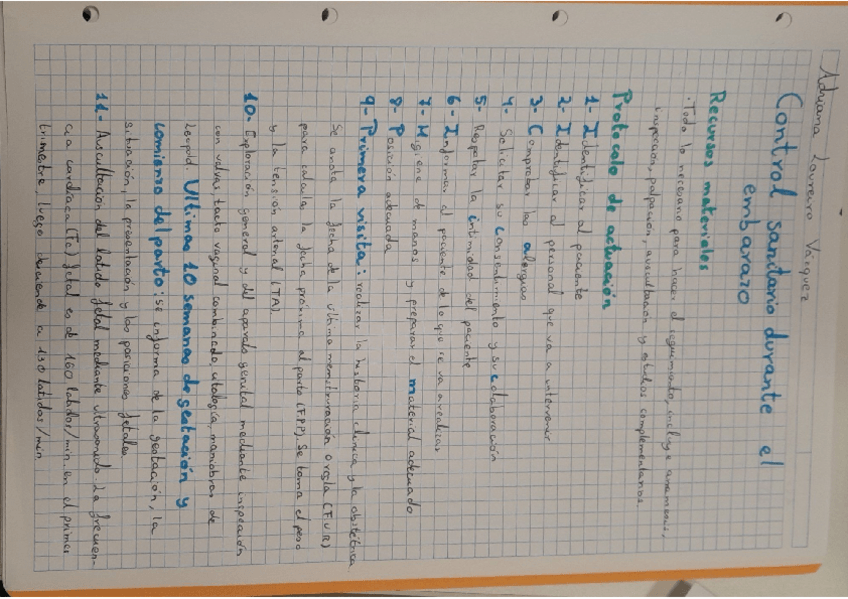 Adriana Loureiro Vázquez
Control sanitario durante el
embarazo
Recursos materiales
· Todo lo necesario para hacer el seguimiento, incluye anamnesis,
inspección, palpación, auscultación y estudios complementarios
Protocolo de actuación
1- Identificar al paciente
2- Identificar al personal que va a intervenir
3- Comprobar las alergias
4- Solicitar su consentimiento y su colaboración
5- Respetar la intimidad del paciente
6- Informar al paciente de lo que se va a realizar
7- Higiene de manos y preparar el material adecuado
8- Posición adecuada
9- Primera visita: realizar la historia clínica y la obstétrica
Se anota la fecha de la última menstruación o regla (F.U.R)
para calcular la fecha próxima al parto (F.P.P). Se toma el peso
y la tensión arterial (TA).
10. Exploración general y del aparato genital mediante inspección
con valvas, tacto vaginal combinado, citología, maniobras de
Leopold. Ultimas 10 semanas de gestación y
comienzo del parto: se informa de la gestación, la
situación, la presentación y las posiciones fetales.
11.- Auscultación del latido fetal mediante ultrasonido. La frecuen-
cia cardíaca (Fc) fetal es de 160 latidos/min. en el primer
trimestre, luego desciende a 130 latidos/min